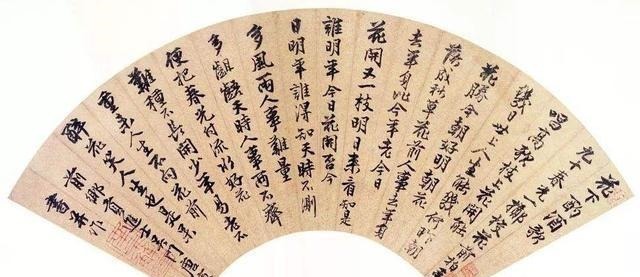 花下酌酒歌
九十春光一擲梭花前酌酒
唱高歌枝上花開能
幾日世上人生能幾何昨朝
花勝今朝好明朝花
落成秋草花前人是去年身
去年身比今年老今日
花開又一枝明日來看知是
誰明年今日花開否今
日明年誰得知天時不測
多風雨人事難量
多齟齬天時人事兩不齊
便把春光付流水好花
難種不長開少年易老不
重來人生不向花前
醉花笑人生也是呆
前鄉貢進士吳門唐寅
書并作